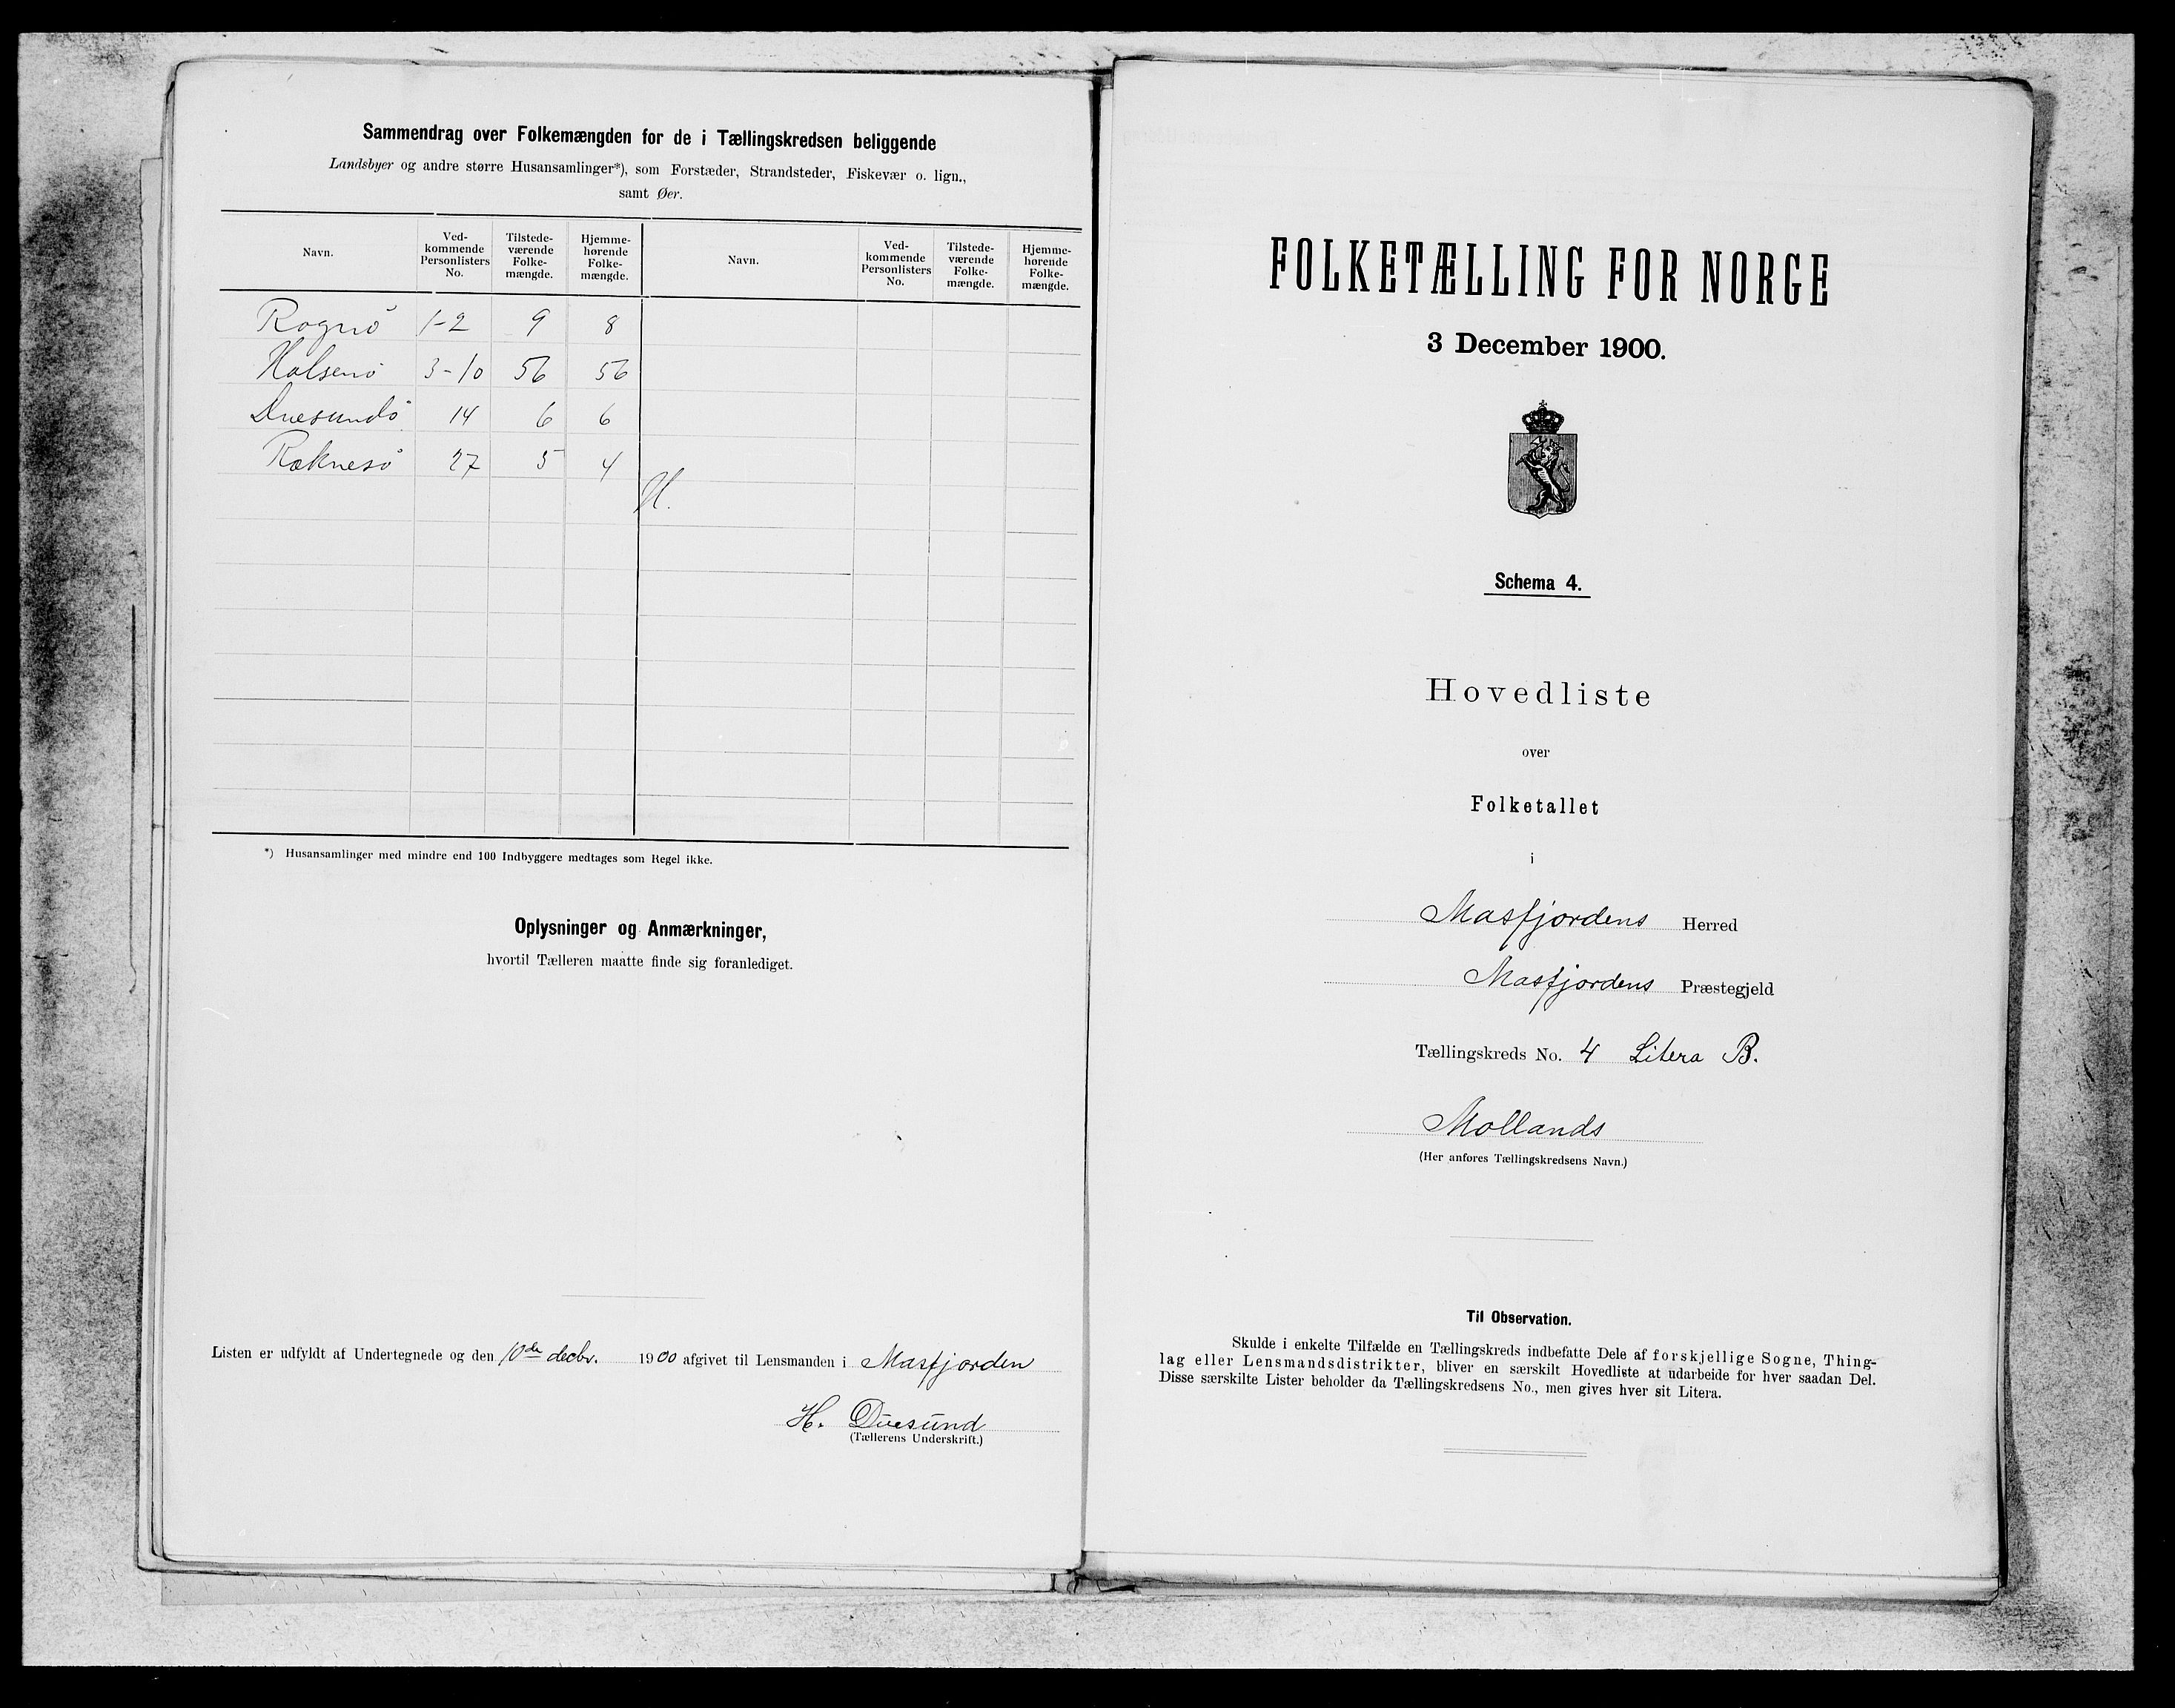 Sammendrag over Folkemængden for de i Tællingskredsen beliggende
Landsbyer og andre større Husansamlinger*), som Forstæder, Strandsteder, Fiskevær o. lign.,
samt Øer.
Navn. Ved-kommende Personlisters No. Tilstede-værende Folke-mængde. Hjemme-hørende Folke-mængde. Navn. Ved-kommende Personlisters No. Tilstede-værende Folke-mængde. Hjemme-hørende Folke-mængde.
Rognö 1-2 9 8
Halsenö 3-10 56 56
Duesundö 14 6 6
Röknesö 27 5 4
H.
*) Husansamlinger med mindre end 100 Indbyggere medtages som Regel ikke.
Oplysninger og Anmærkninger,
hvortil Tælleren maatte finde sig foranlediget.
Listen er udfyldt af Undertegnede og den 10de decbr. 1900 afgivet til Lensmanden i Masfjorden
H. Duesund
(Tællerens Underskrift.)
FOLKETÆLLING FOR NORGE
3 December 1900.
Schema 4.
Hovedliste
over
Folketallet
i
Masfjordens Herred
Masfjordens Præstegjeld
Tællingskreds No. 4 Litera B.
Mollands
(Her anføres Tællingskredsens Navn.)
Til Observation.
Skulde i enkelte Tilfælde en Tællingskreds indbefatte Dele af forskjellige Sogne, Thing-
lag eller Lensmandsdistrikter, bliver en særskilt Hovedliste at udarbeide for hver saadan Del.
Disse særskilte Lister beholder da Tællingskredsens No., men gives hver sit Litera.